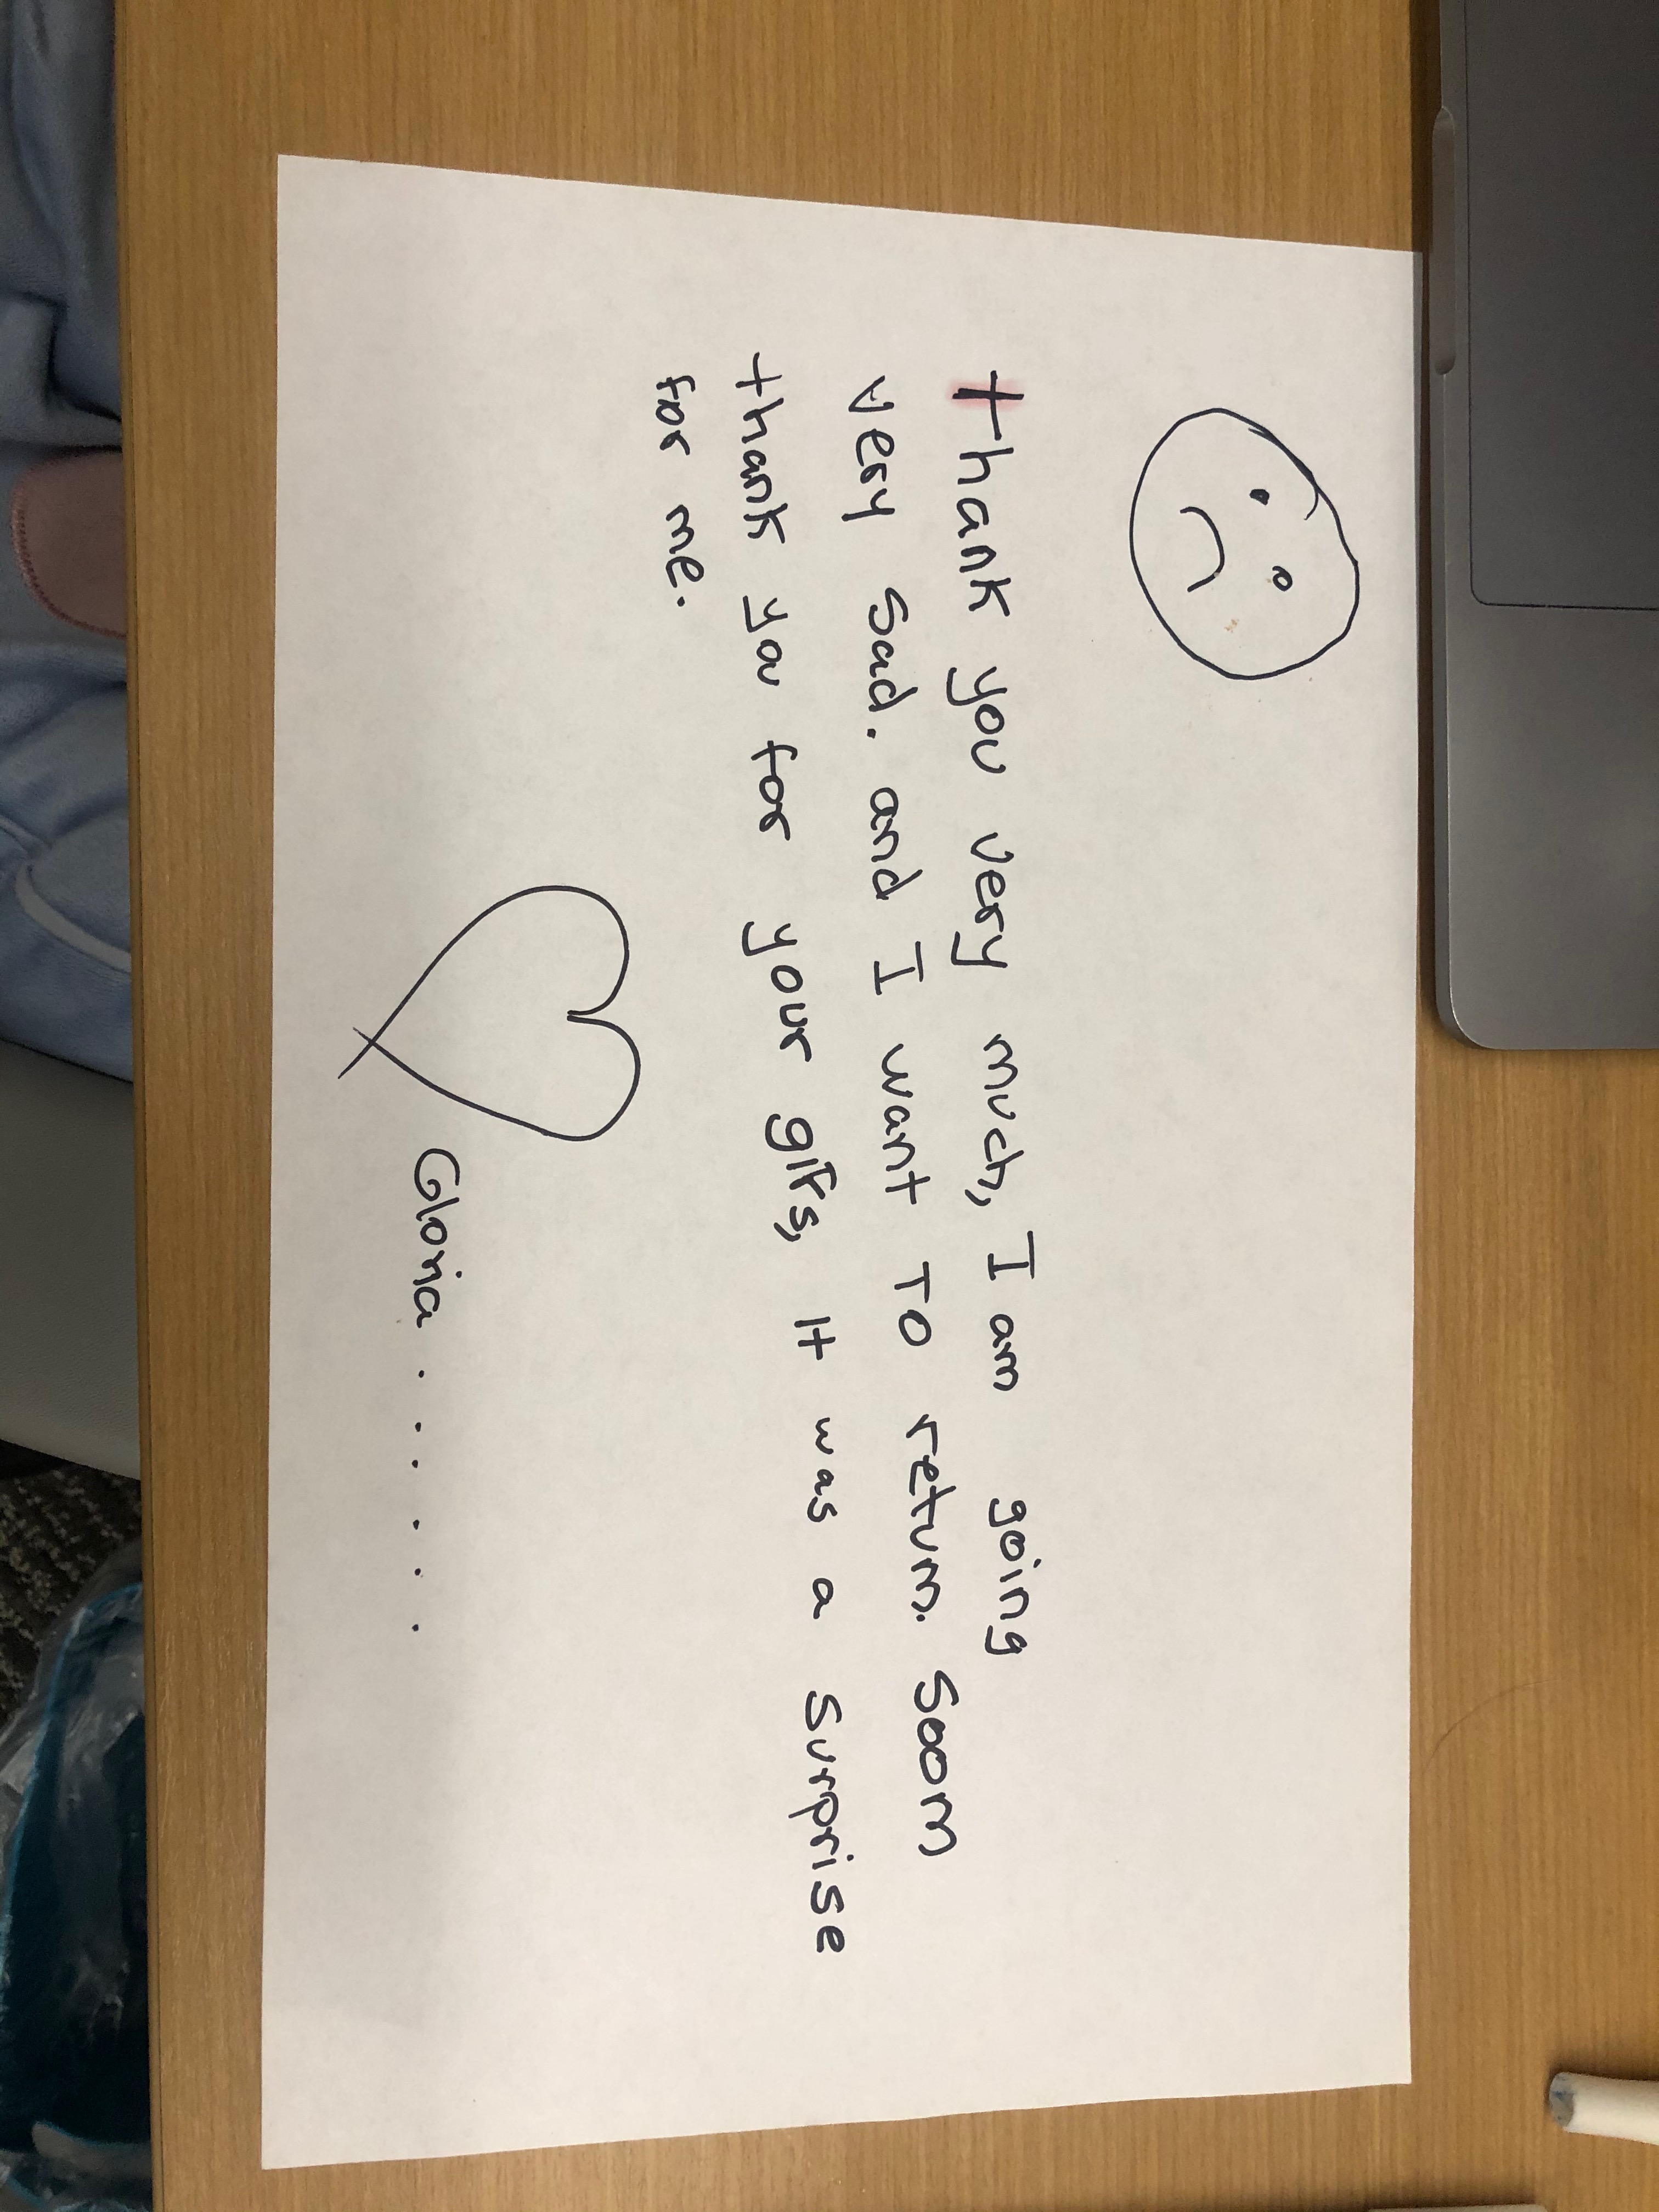 thank you very much, I am going
very sad. and I want TO return. Soom
thank you for your gifts, it was a surprise
for me.
Gloria . . . . . .